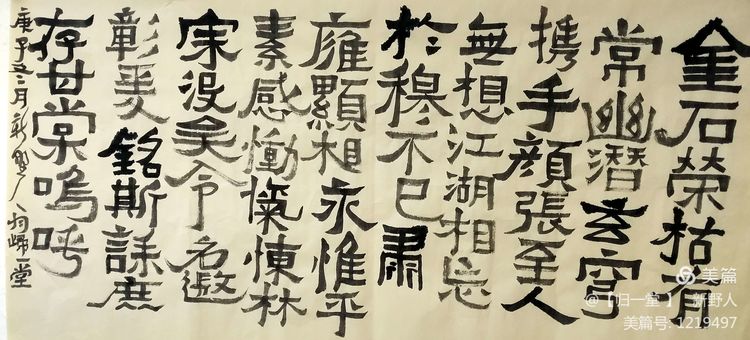 金石榮枯有
常幽潛玄穹
携手顔張至人
無想江湖相忘
於穆不已肅
雍顯相永惟平
素感慟氣悽林
宗没矣令名遐
彰爰銘斯誄庶
存甘棠嗚呼
庚子 月新野 歸一堂
美篇
@【归一堂】 新野人
美篇号: 1219497